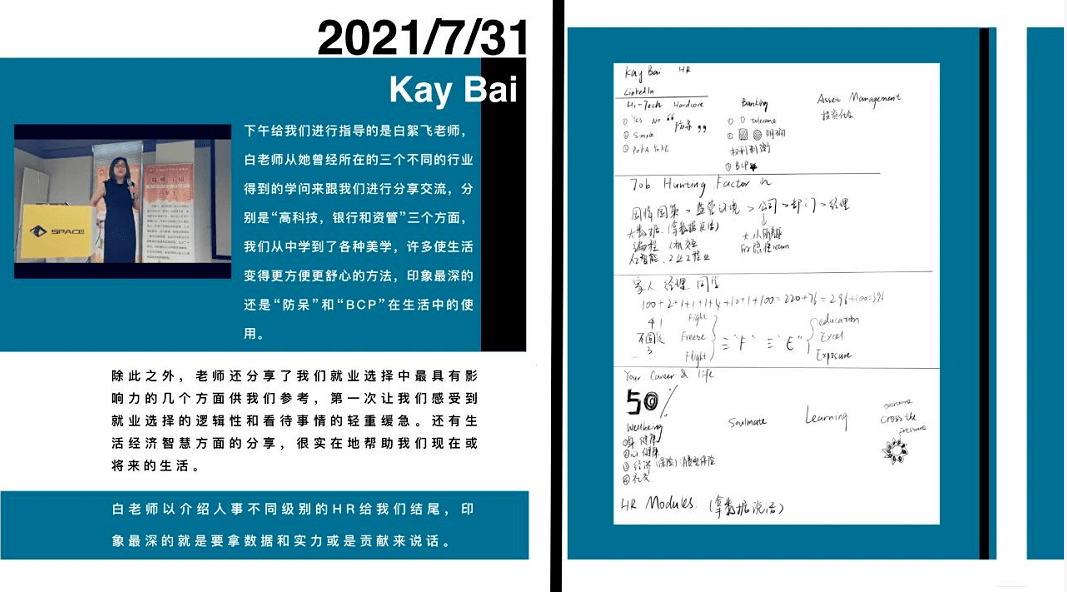 2021/7/31
Kay Bai
下午给我们进行指导的是白絮飞老师，
白老师从她曾经所在的三个不同的行业
得到的学问来跟我们进行分享交流，分
别是“高科技，银行和资管”三个方面，
我们从中学到了各种美学，许多使生活
变得更方便更舒心的方法，印象最深的
还是“防呆”和“BCP”在生活中的使
用。
SPACE
除此之外，老师还分享了我们就业选择中最具有影
响力的几个方面供我们参考，第一次让我们感受到
就业选择的逻辑性和看待事情的轻重缓急。还有生
活经济智慧方面的分享，很实在地帮助我们现在或
将来的生活。
白老师以介绍人事不同级别的HR给我们结尾，印
象最深的就是要拿数据和实力或是贡献来说话。
Kay Bai HR
LinkedIn
Hi-Tech Hardcore
① Yes No “防呆”
② Simple
③
Banking
① tolerance
②
权利制衡
③ BCP
Asset Management
Job Hunting Factor
监管环境 > 公司 > 部门 > 经理
大数据 (拿数据说话)
编程
人工智能
家人 经理 同学
100+2+1+1+4+10+1+100=220+76=296+100=396
Fight
Freeze
Flight
三“F” 三“E”
education
Excel
Exposure
Your Career & life
50%
Wellbeing
①身健康
②心健康
③经济 (保险)
④社交
Soulmate
Learning
overcome
Cross the
pressure
HR Modules. (拿数据说话)